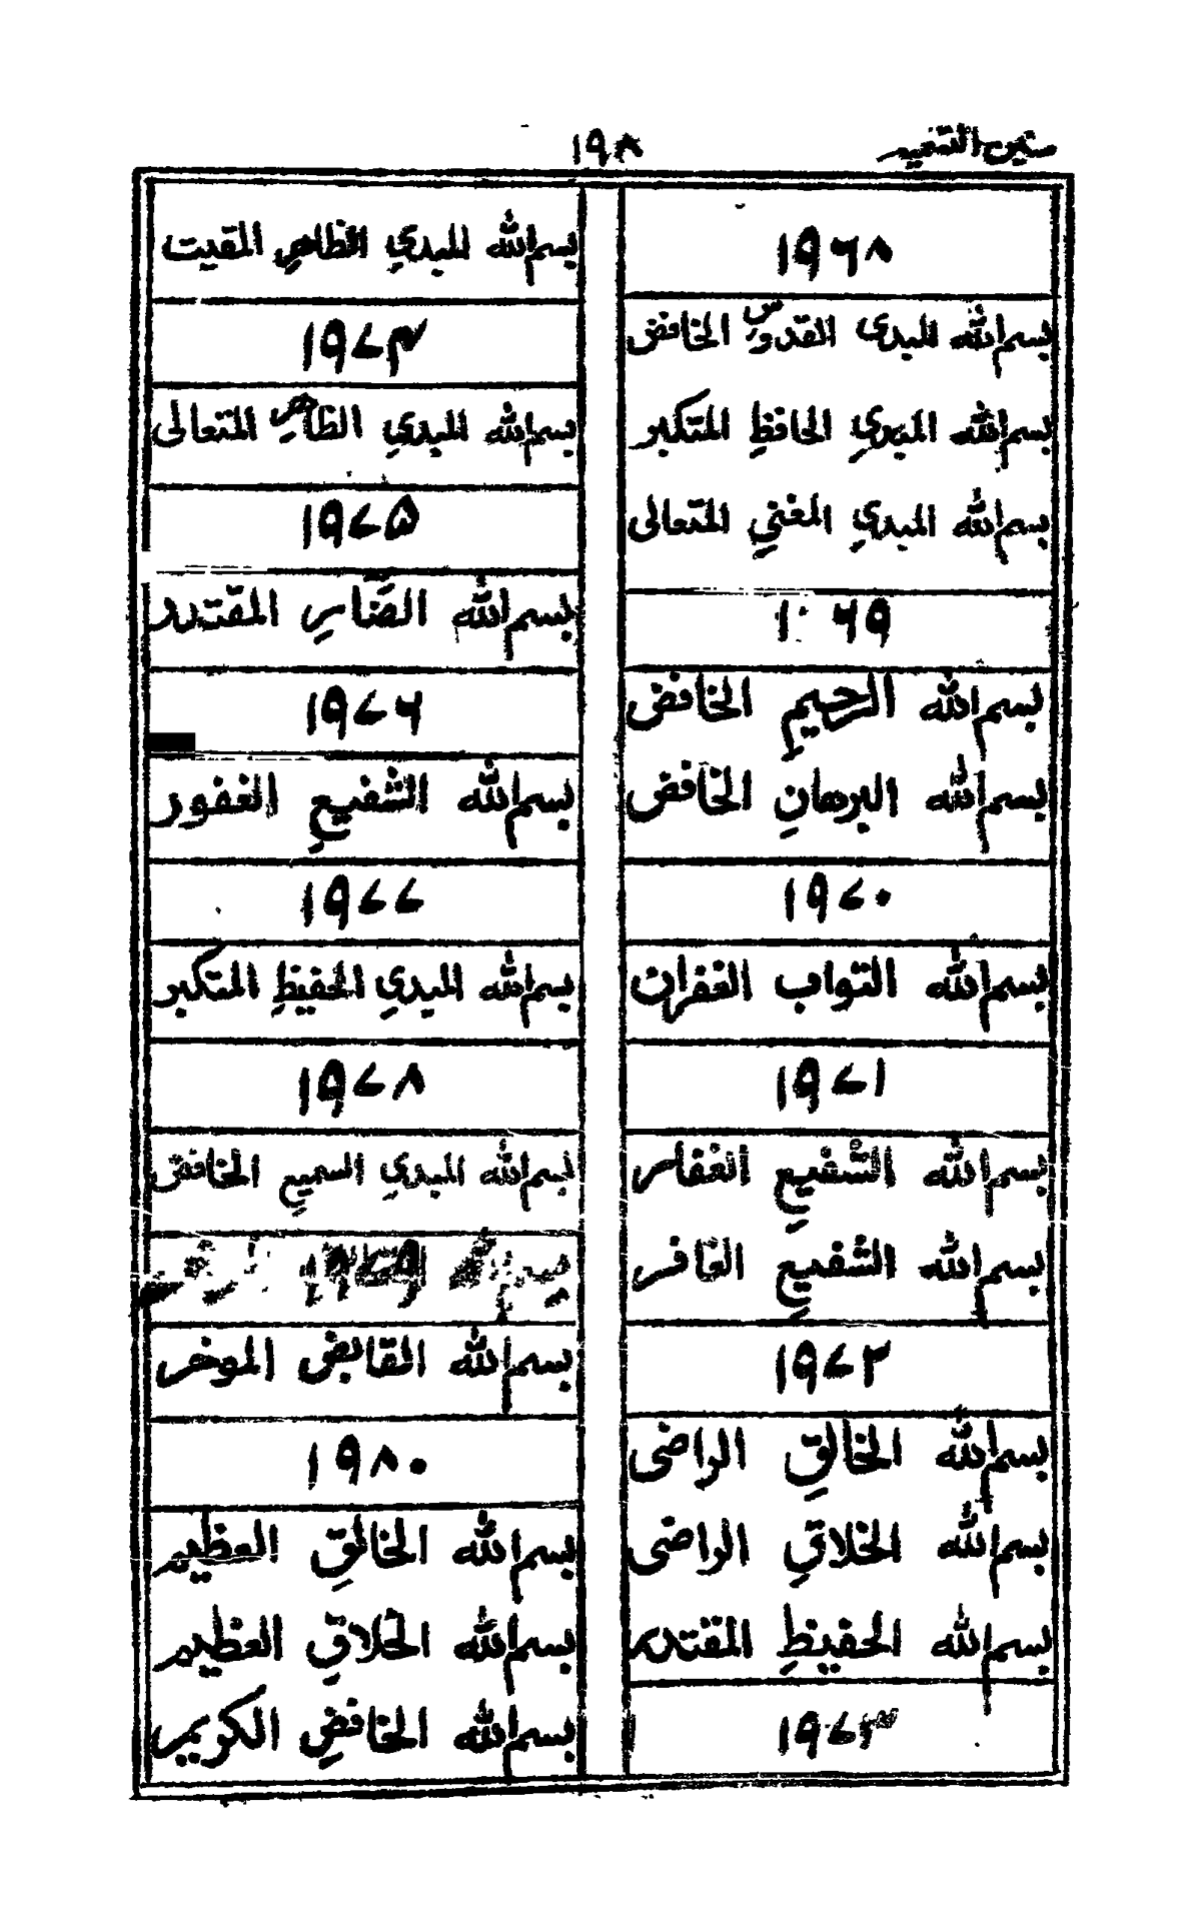 سنین التعمیر
۱۹۸
۱۹۶۸
بسم الله المبدی القدوس الخافض
بسم الله المبدي الحافظ المتكبر
بسم الله المبدي المغني المتعالى
۱۹۶۹
بسم الله الرحيم الخافض
بسم الله البرهان الخافض
۱۹۷۰
بسم الله التواب الغفران
۱۹۷۱
بسم الله الشفيع الغفار
بسم الله الشفيع الغافر
۱۹۷۲
بسم الله الخالق الراضى
بسم الله الخلاق الراضى
بسم الله الحفيظ المقتدر
۱۹۷۳
بسم الله المبدي الظاهر المقيت
۱۹۷۴
بسم الله المبدي الظاهر المتعالى
۱۹۷۵
بسم الله الضار المقتدر
۱۹۷۶
بسم الله الشفيع الغفور
۱۹۷۷
بسم الله المبدي الحفيظ المتكبر
۱۹۷۸
بسم الله المبدي السميع الخافض
بسم الله القابض الموخر
۱۹۸۰
بسم الله الخالق العظيم
بسم الله الخلاق العظيم
بسم الله الخافض الكريم